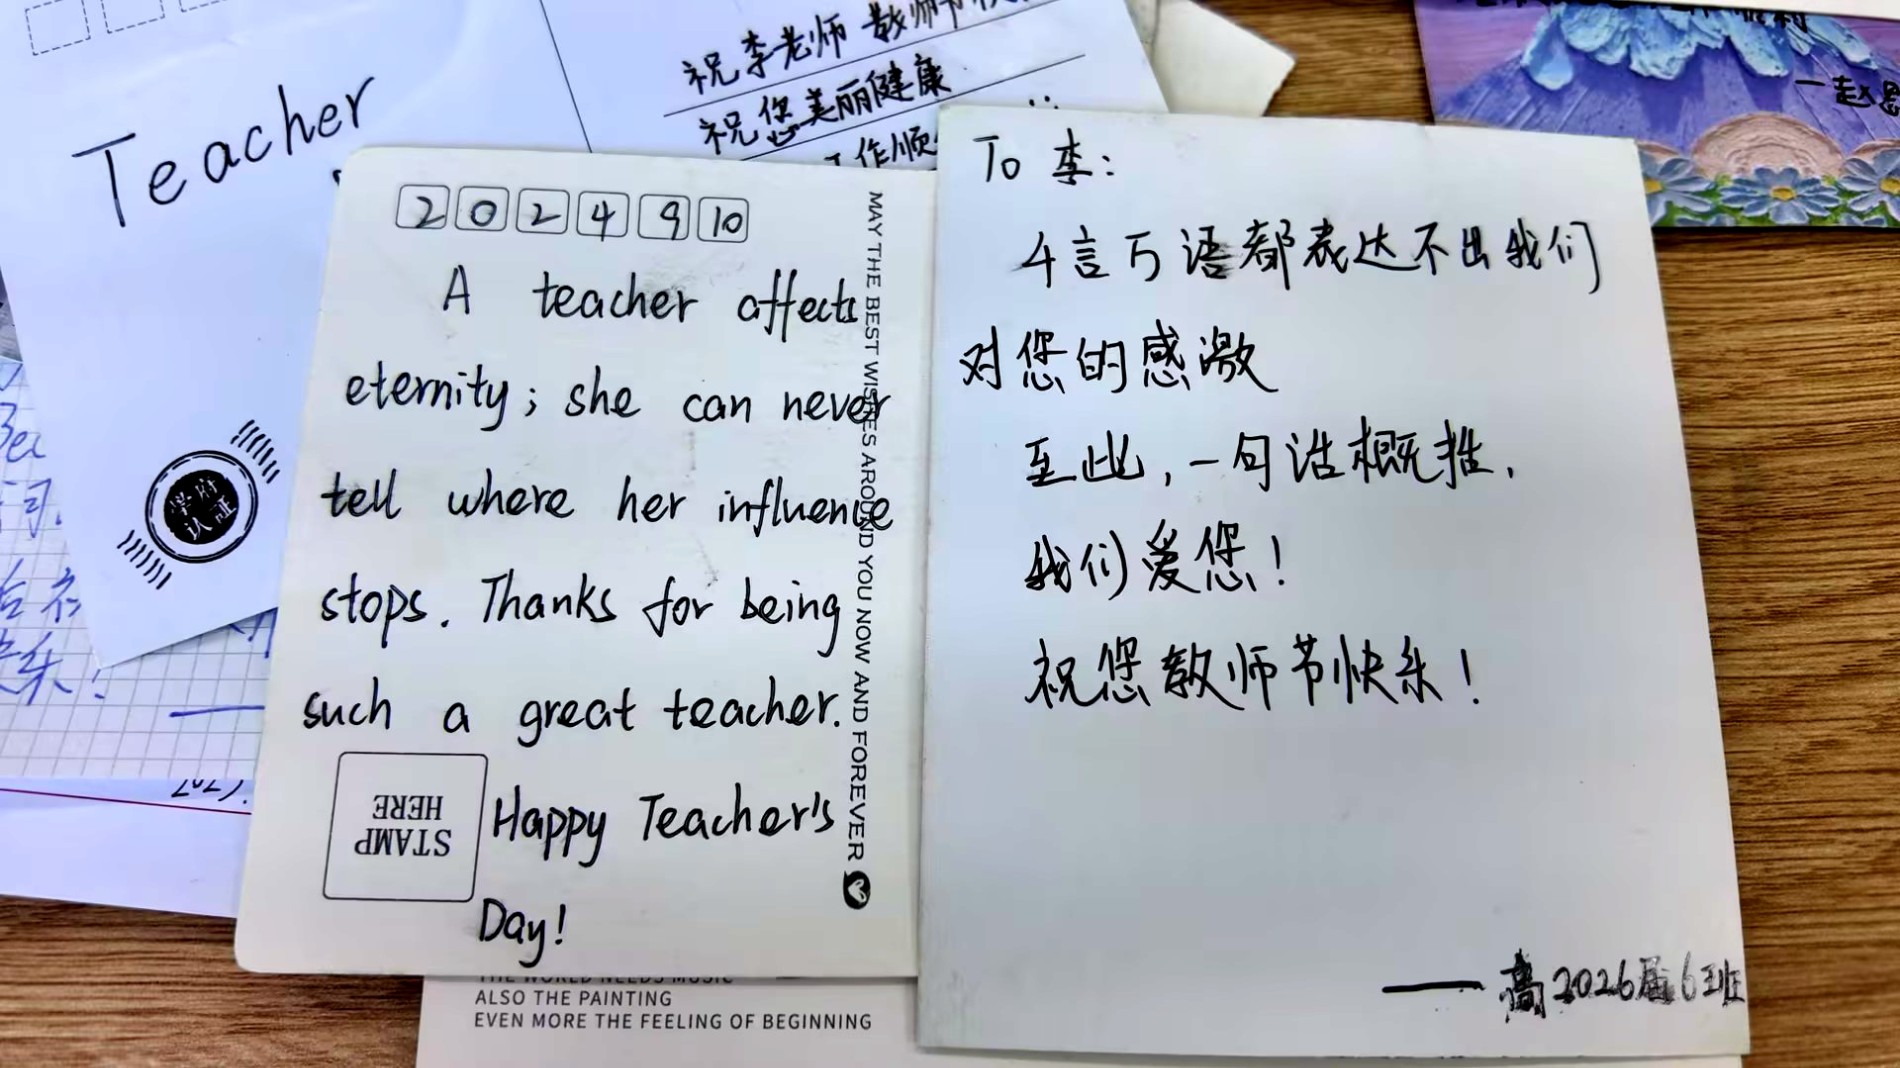 Teacher
祝李老师 教师节
祝您美丽健康
工作顺
学府
认证
2024910
A teacher affects
eternity; she can never
tell where her influence
stops. Thanks for being
such a great teacher.
Happy Teacher's
Day!
STAMP
HERE
MAY THE BEST WISHES AROUND YOU NOW AND FOREVER
ALSO THE PAINTING
EVEN MORE THE FEELING OF BEGINNING
To 李:
千言万语都表达不出我们
对您的感激
至此,一句话概括,
我们爱您!
祝您教师节快乐!
——高2026届6班